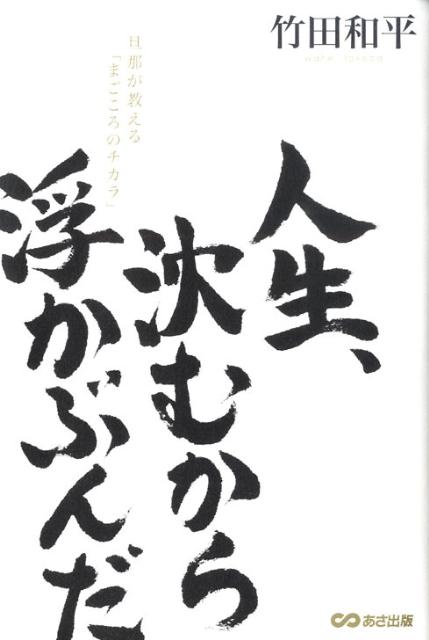 竹田和平
wahei takeda
人生、
沈むから
浮かぶんだ
旦那が教える
「まごころのチカラ」
あさ出版